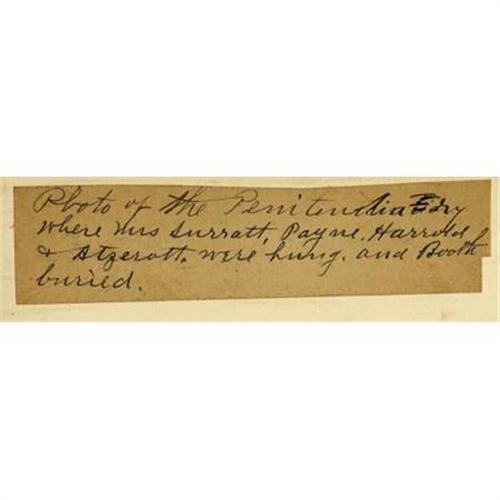 Photo of the Penitentiary
where Mrs Surratt, Payne, Harrold
& Atzerott, were hung. and Booth
buried.